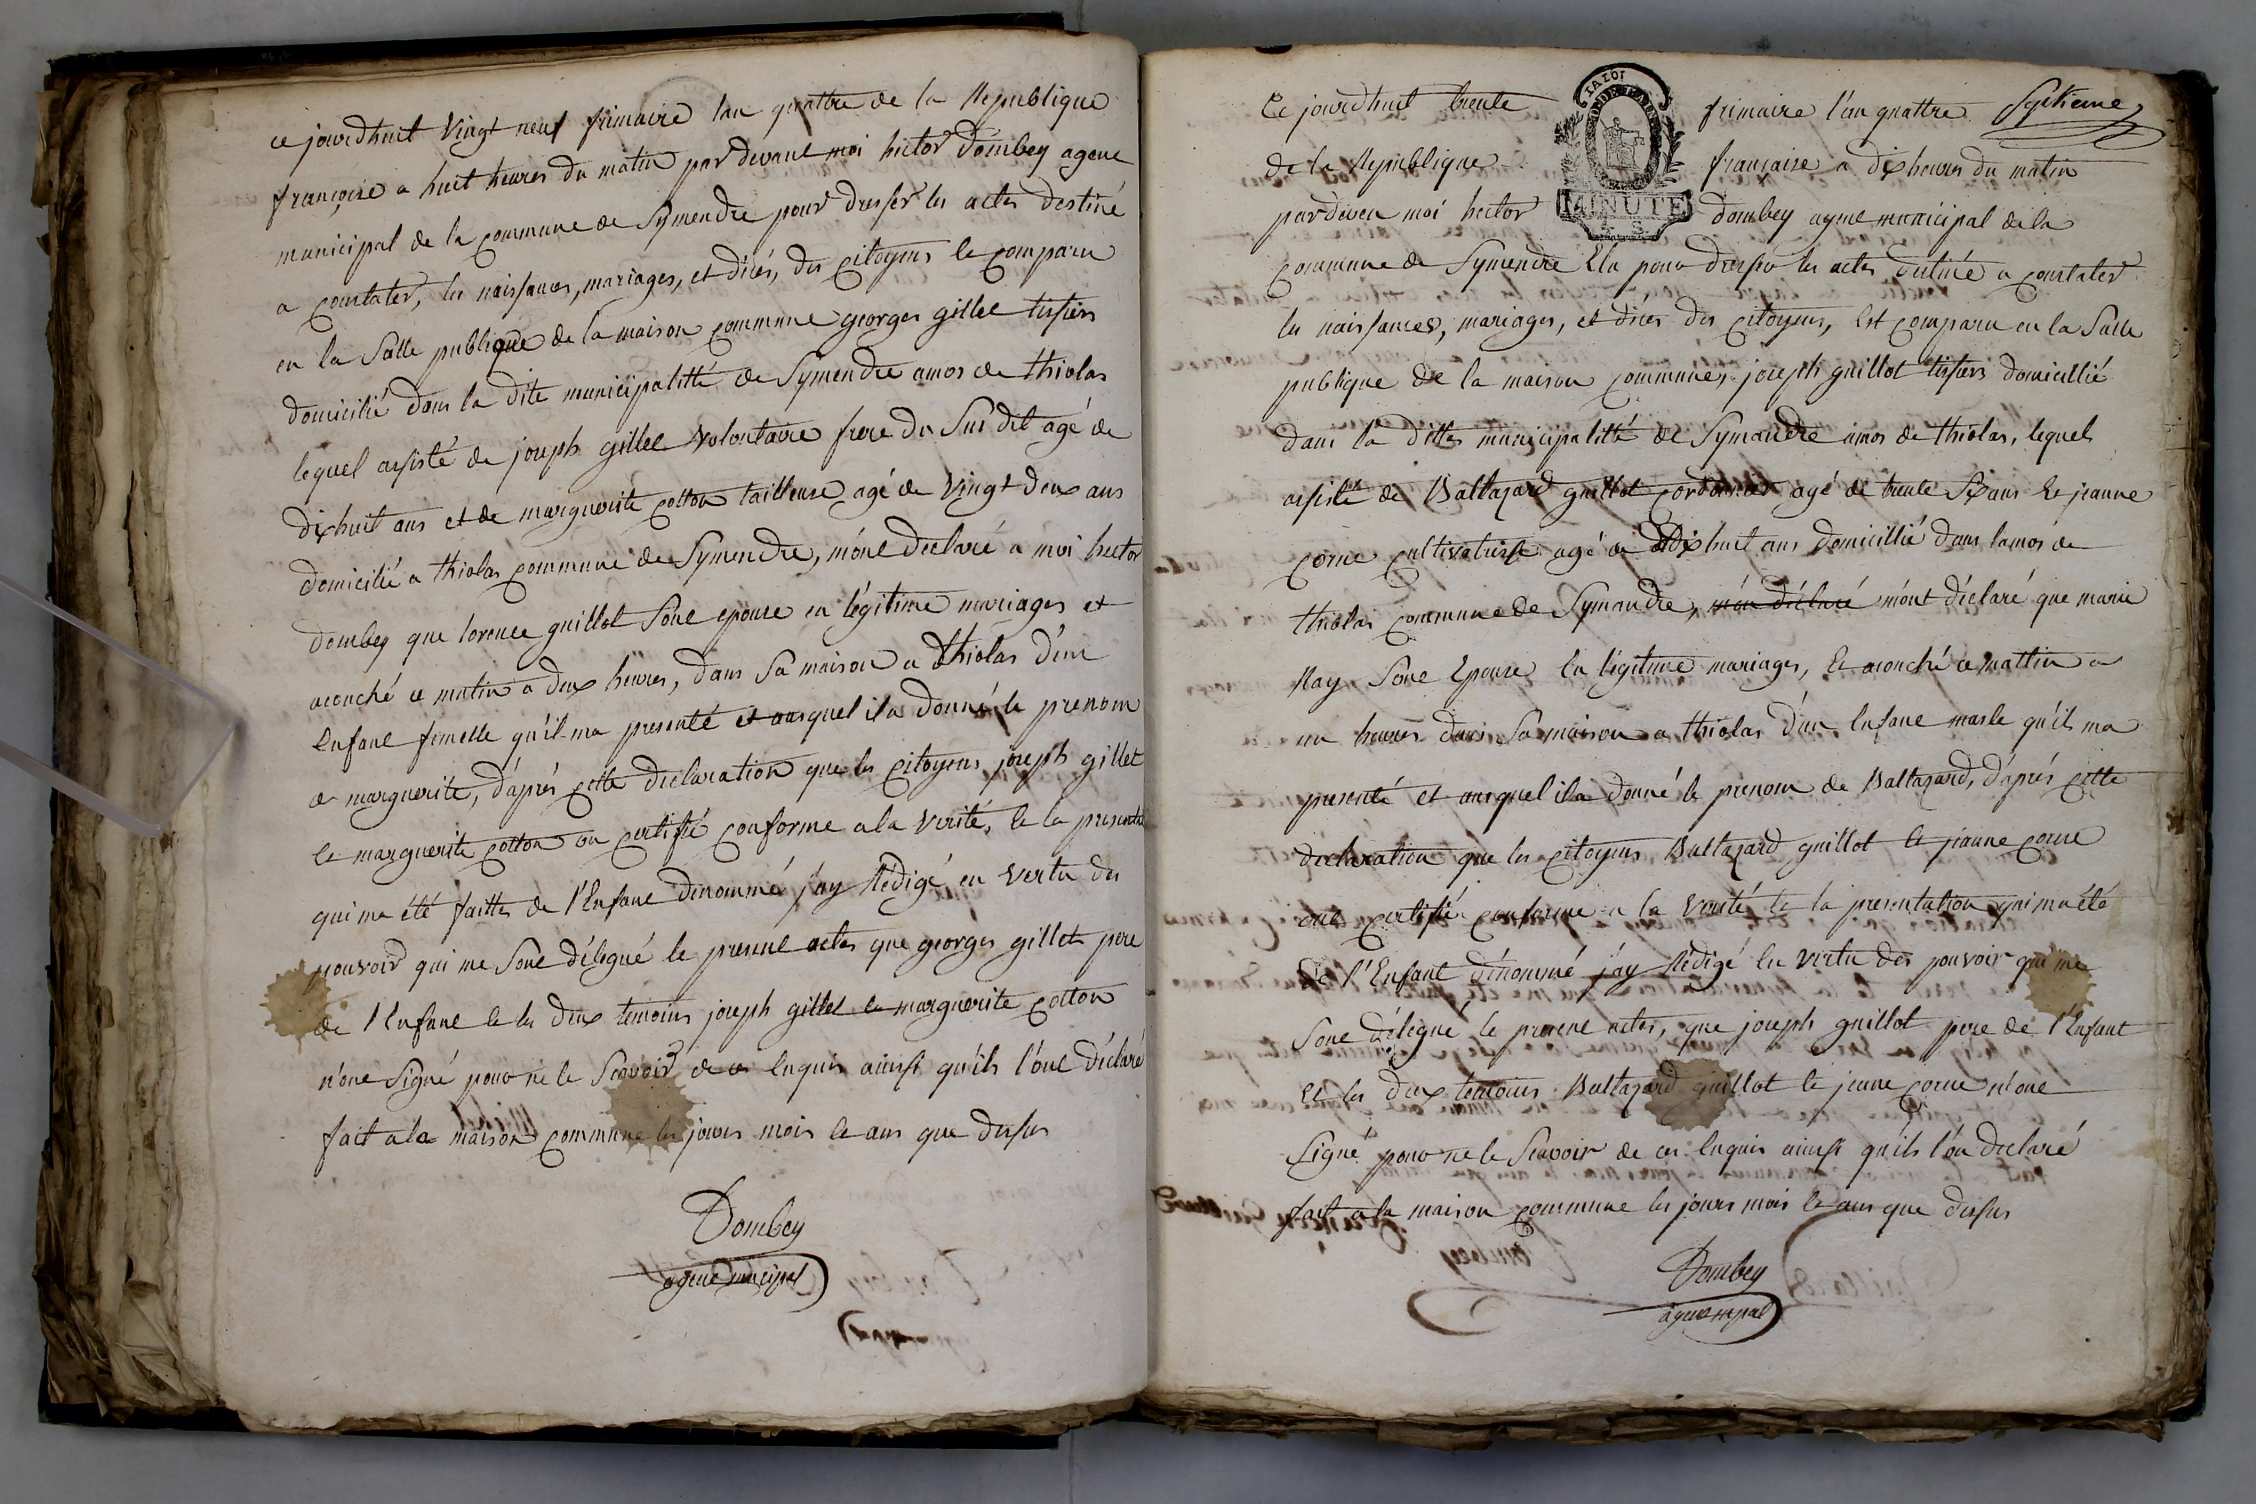 ce jourdhuit Vingt neuf frimaire lan quattre de la Republique
françoise a huit heures du matin par devant moi hector Dombey agent
municipal de la commune de Symendre pour dresser les actes destiné
a constater, les naissances, mariages, et décés, des citoyens le comparu
en la Salle publique de la maison commune georges gillet tissiers
domicilié dans la dite municipalitté de Symendre amos de thiolas
lequel assisté de joseph gillet Volontaire frere du Sus dit agé de
dixhuit ans et de marguerite cotton tailleuse agé de Vingt deux ans
domicilié a thiolas commune de Symendre, m'ont déclaré a moi hector
Dombey que lorence guillot Sont epouse en légitime mariages et
acouché ce matin a deux heures, dans Sa maison a thiolas d'un
Enfant femelle qu'il ma presenté et auxquel il a donné le prenom
de marguerite, d'après cette declaration que les citoyens joseph gillet
Et marguerite cotton on certifié conforme a la Verité, Et la presente
qui ma été faittes de l'Enfant dénommé j'ay Rédigé en Vertu des
pouvoir qui me Sont délégué le present actes que georges gillet pere
de l'Enfant Et les deux temoins joseph gillet Et marguerite cotton
n'ont Signé pour ne le Scavoir de ce Enquis ainsst qu'ils l'ont déclaré
fait a la maison commune les jours mois Et ans que dessus
Dombey
agent municipal
Ce jourdhuit trente frimaire l'an quattre Septieme
MINUTE
de la Republique francaise a dix heures du matin
pardeven moi hector Dombey agent municipal de la
commune de Symendre Ela pour dresser les actes destiné a constater
les naissances, mariages, et décés des citoyens, Est comparu en la Salle
publique de la maison communes joseph guillot tissiers domicillié
dans la dittes municipalitté de Symandre amos de thiolas, lequel
assisté de Baltazard guillot cordonnier agé de trente Six ans Et jeanne
corne cultivatrisse agé de dixhuit ans domicillié dans lamos de
thiolas commune de Symandre, m'on déclaré m'ont déclaré que marie
Ray Sont Epouse En légitime mariages, Et acouché ce mattin a
un heures dans Sa maison a thiolas d'un Enfant masle qu'il ma
presenté et auxquel il a donné le prenom de Baltazard, d'après cette
declaration que les citoyens Baltazard guillot Et jeanne corne
ont certifié conforme a la Verité Et la presentation qui ma été
de l'Enfant dénommé j'ay Rédigé En Vertu des pouvoir qui me
Sont délegué le present actes, que joseph guillot pere de l'Enfant
Et les deux temoins Baltazard guillot Et jeanne corne n'ont
Signé pour ne le Scavoir de ces Enquis ainsst qu'ils l'on declaré
fait a la maison commune les jours mois Et ans que dessus
Dombey
agent mpal